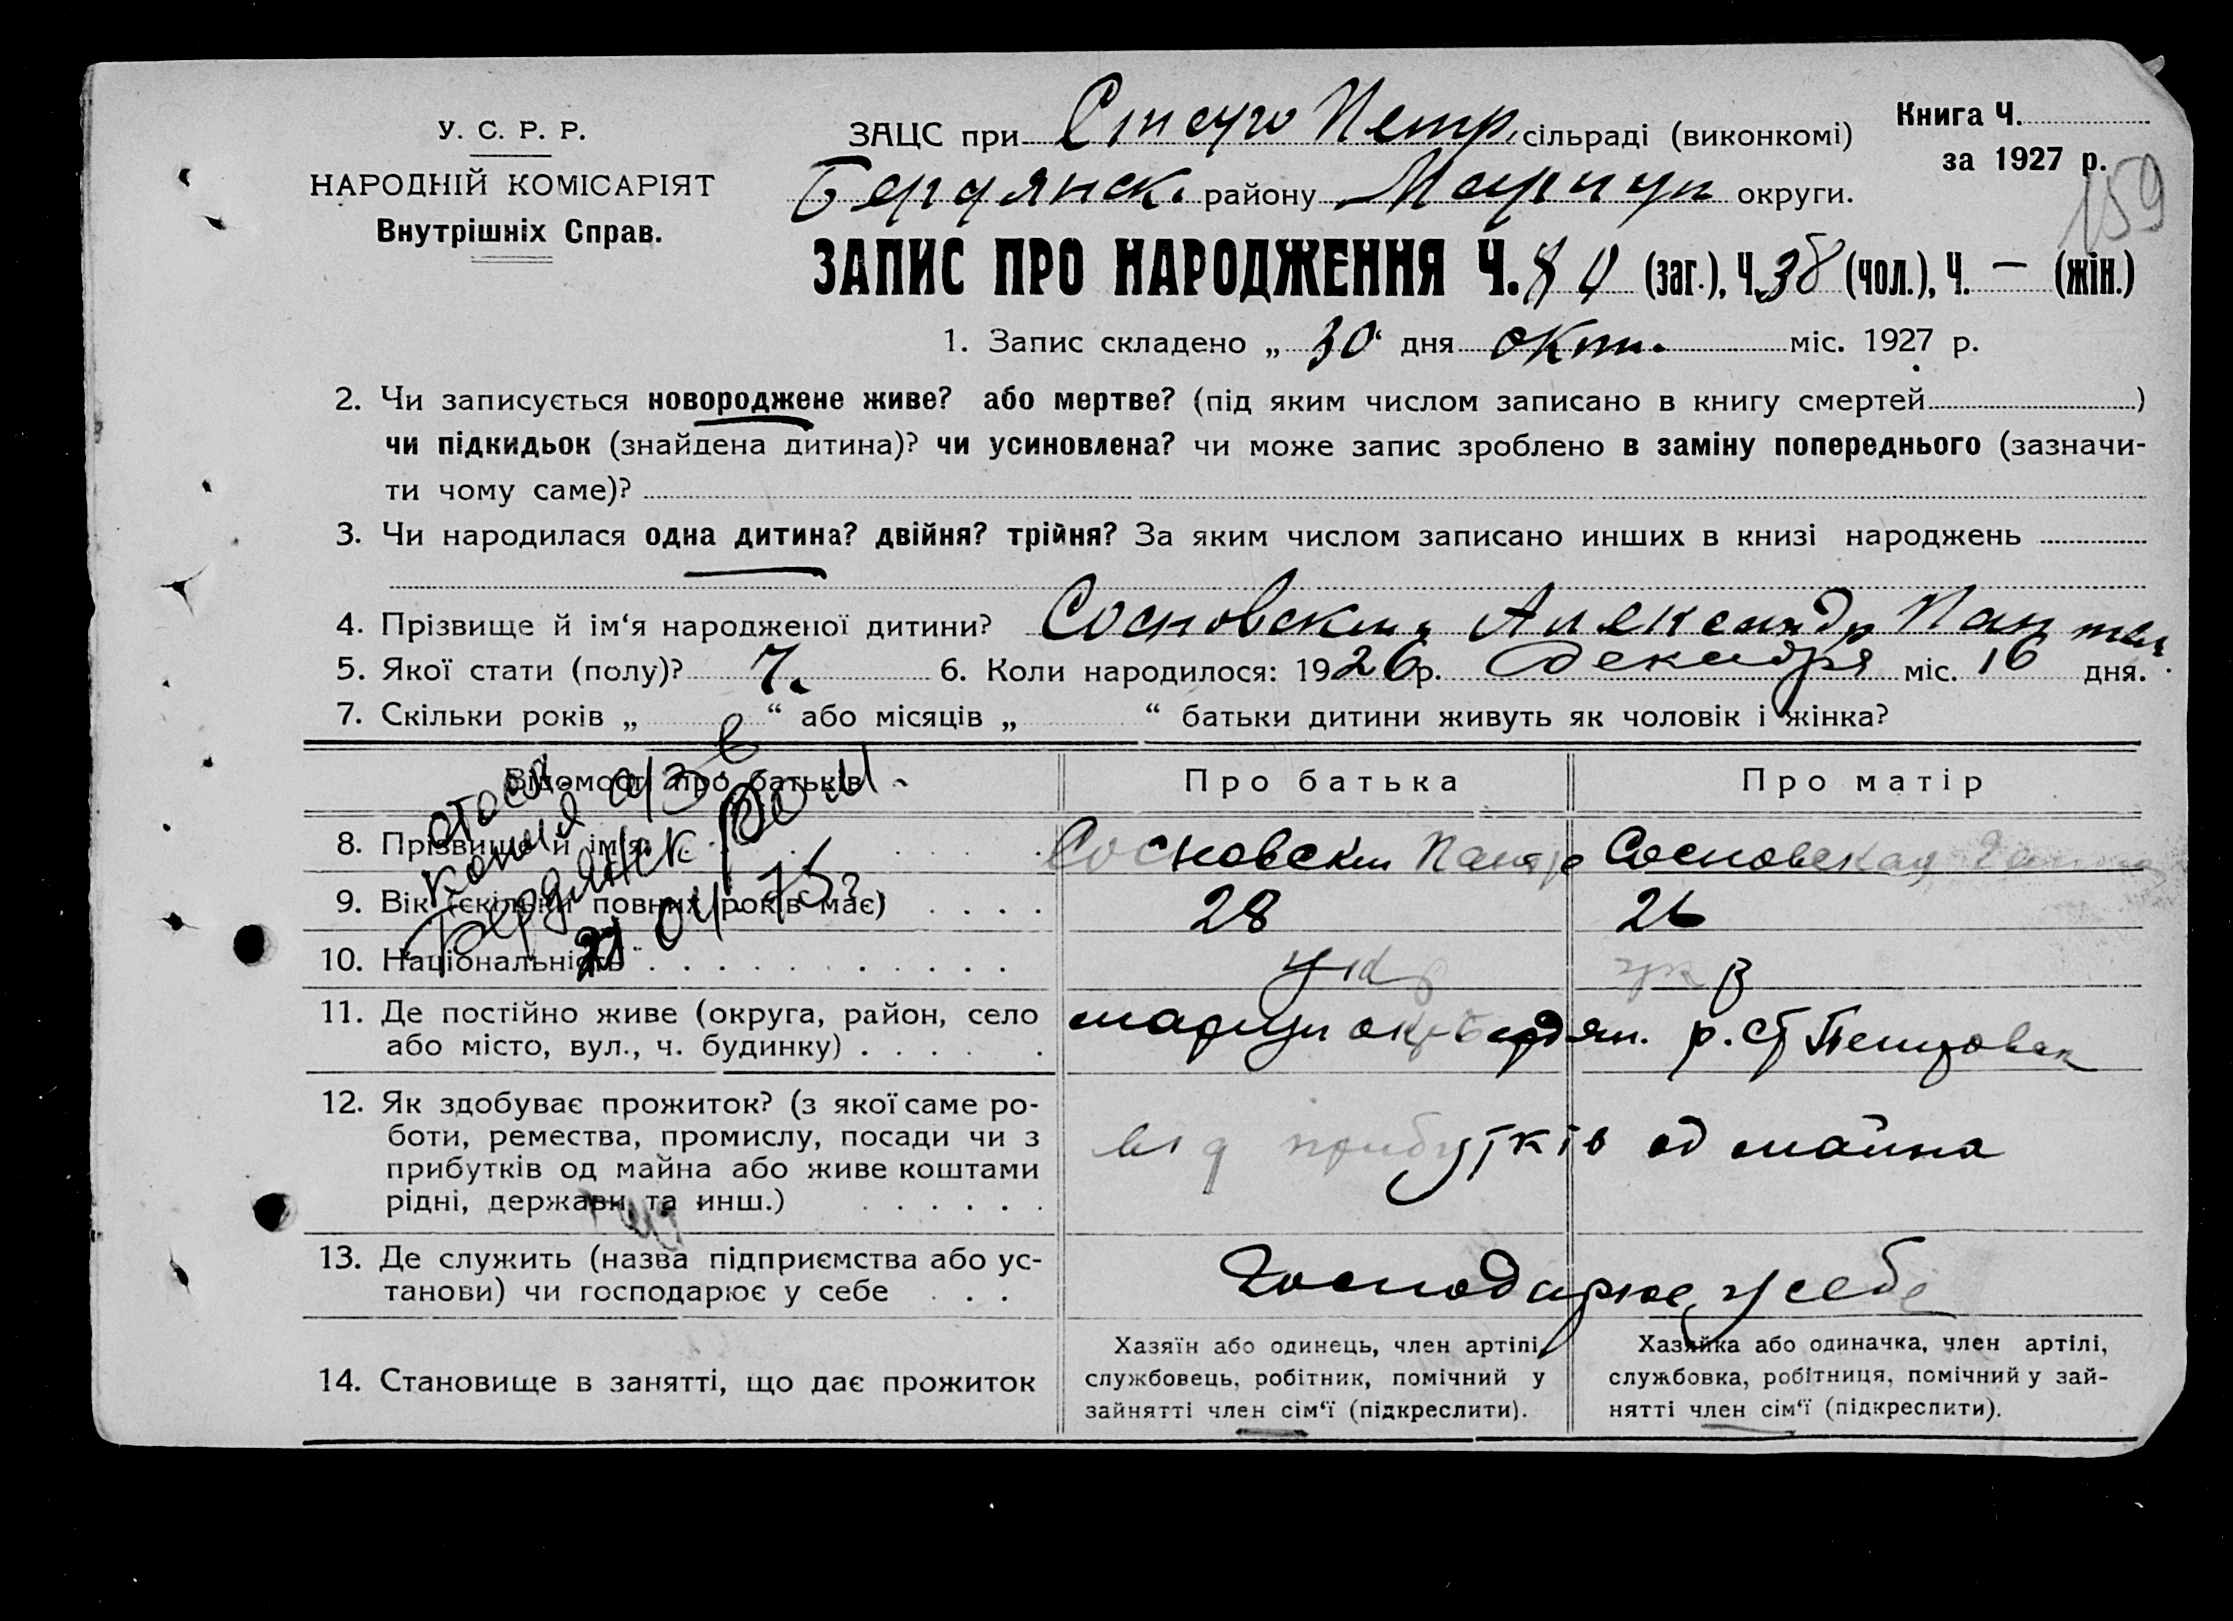 У. С. Р. Р.
НАРОДНІЙ КОМІСАРІЯТ
Внутрішніх Справ.
ЗАЦС при Старо Петр. сільраді (виконкомі)
Бердянск. району Мариуп округи.
Книга Ч.
за 1927 р.
159
ЗАПИС ПРО НАРОДЖЕННЯ Ч. (заг.), Ч. 38 (чол.), Ч. — (жін.)
1. Запис складено „ 30 “ дня окт. міс. 1927 р.
2. Чи записується новороджене живе? або мертве? (під яким числом записано в книгу смертей )
чи підкидьок (знайдена дитина)? чи усиновлена? чи може запис зроблено в заміну попереднього (зазначи-
ти чому саме)?
3. Чи народилася одна дитина? двійня? трійня? За яким числом записано инших в книзі народжень
4. Прізвище й ім‘я народженої дитини? Сосновский Александр
5. Якої стати (полу)? Ч. 6. Коли народилося: 1926 р. декабря міс. 16 дня.
7. Скільки років „ “ або місяців „ “ батьки дитини живуть як чоловік і жінка?
Відомости про батьків
Про батька
Про матір
копия в
Бердянск
04 75г
8. Прізвище й ім‘я Сосновский Сосновская
9. Вік (скільки повних років має) 28 26
10. Національність укр укр
11. Де постійно живе (округа, район, село
або місто, вул., ч. будинку)
мариуп окр Бердян. р. Ст Петровск
12. Як здобуває прожиток? (з якої саме ро-
боти, ремества, промислу, посади чи з
прибутків од майна або живе коштами
рідні, держави, та инш.)
від прибутків од майна
13. Де служить (назва підприємства або ус-
танови) чи господарює у себе
Господарює у себе
14. Становище в занятті, що дає прожиток
Хазяїн або одинець, член артілі,
службовець, робітник, помічний у
зайнятті член сім‘ї (підкреслити).
Хазяйка або одиначка, член артілі,
службовка, робітниця, помічний у зай-
нятті член сім‘ї (підкреслити).